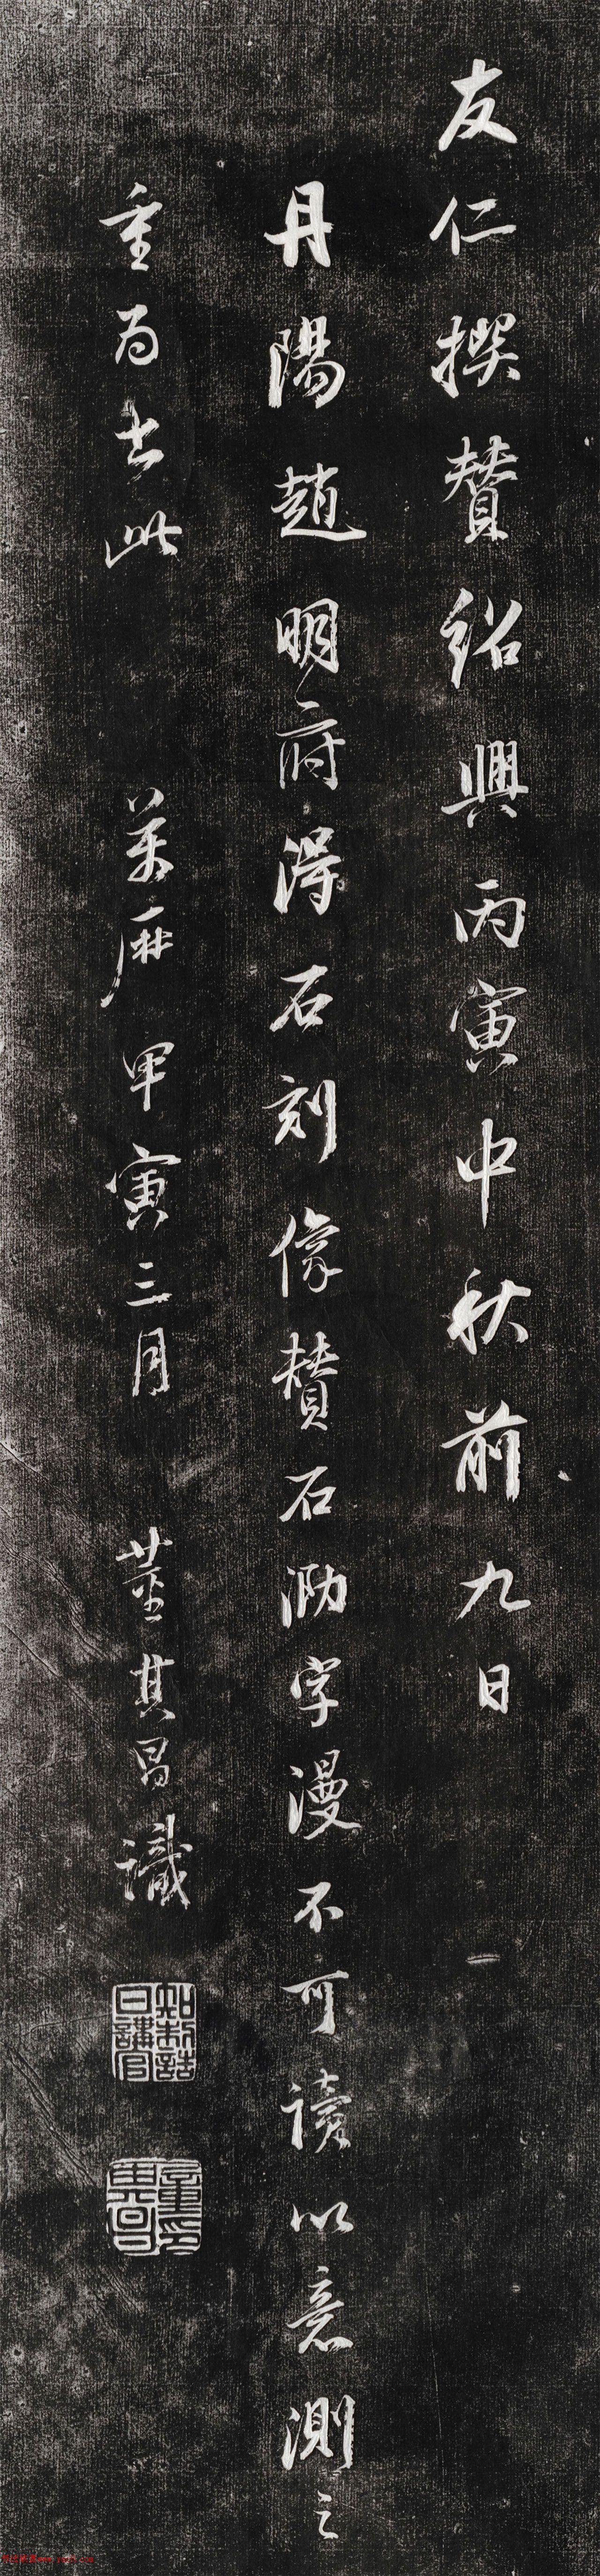 友仁撰賛紹興丙寅中秋前九日
丹陽趙明府得石刻像賛石泐字漫不可讀以意測之
重為書此 萬曆甲寅三月 董其昌識
知制誥日講官
董其昌印